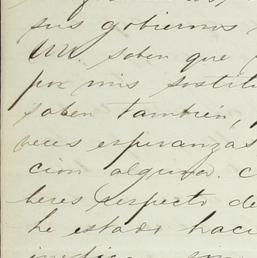 sus gobiernos
UU. saben que
por mis sostit
saben también,
veces esperanzas
cion alguna. C
beres respecto de
he estado haci